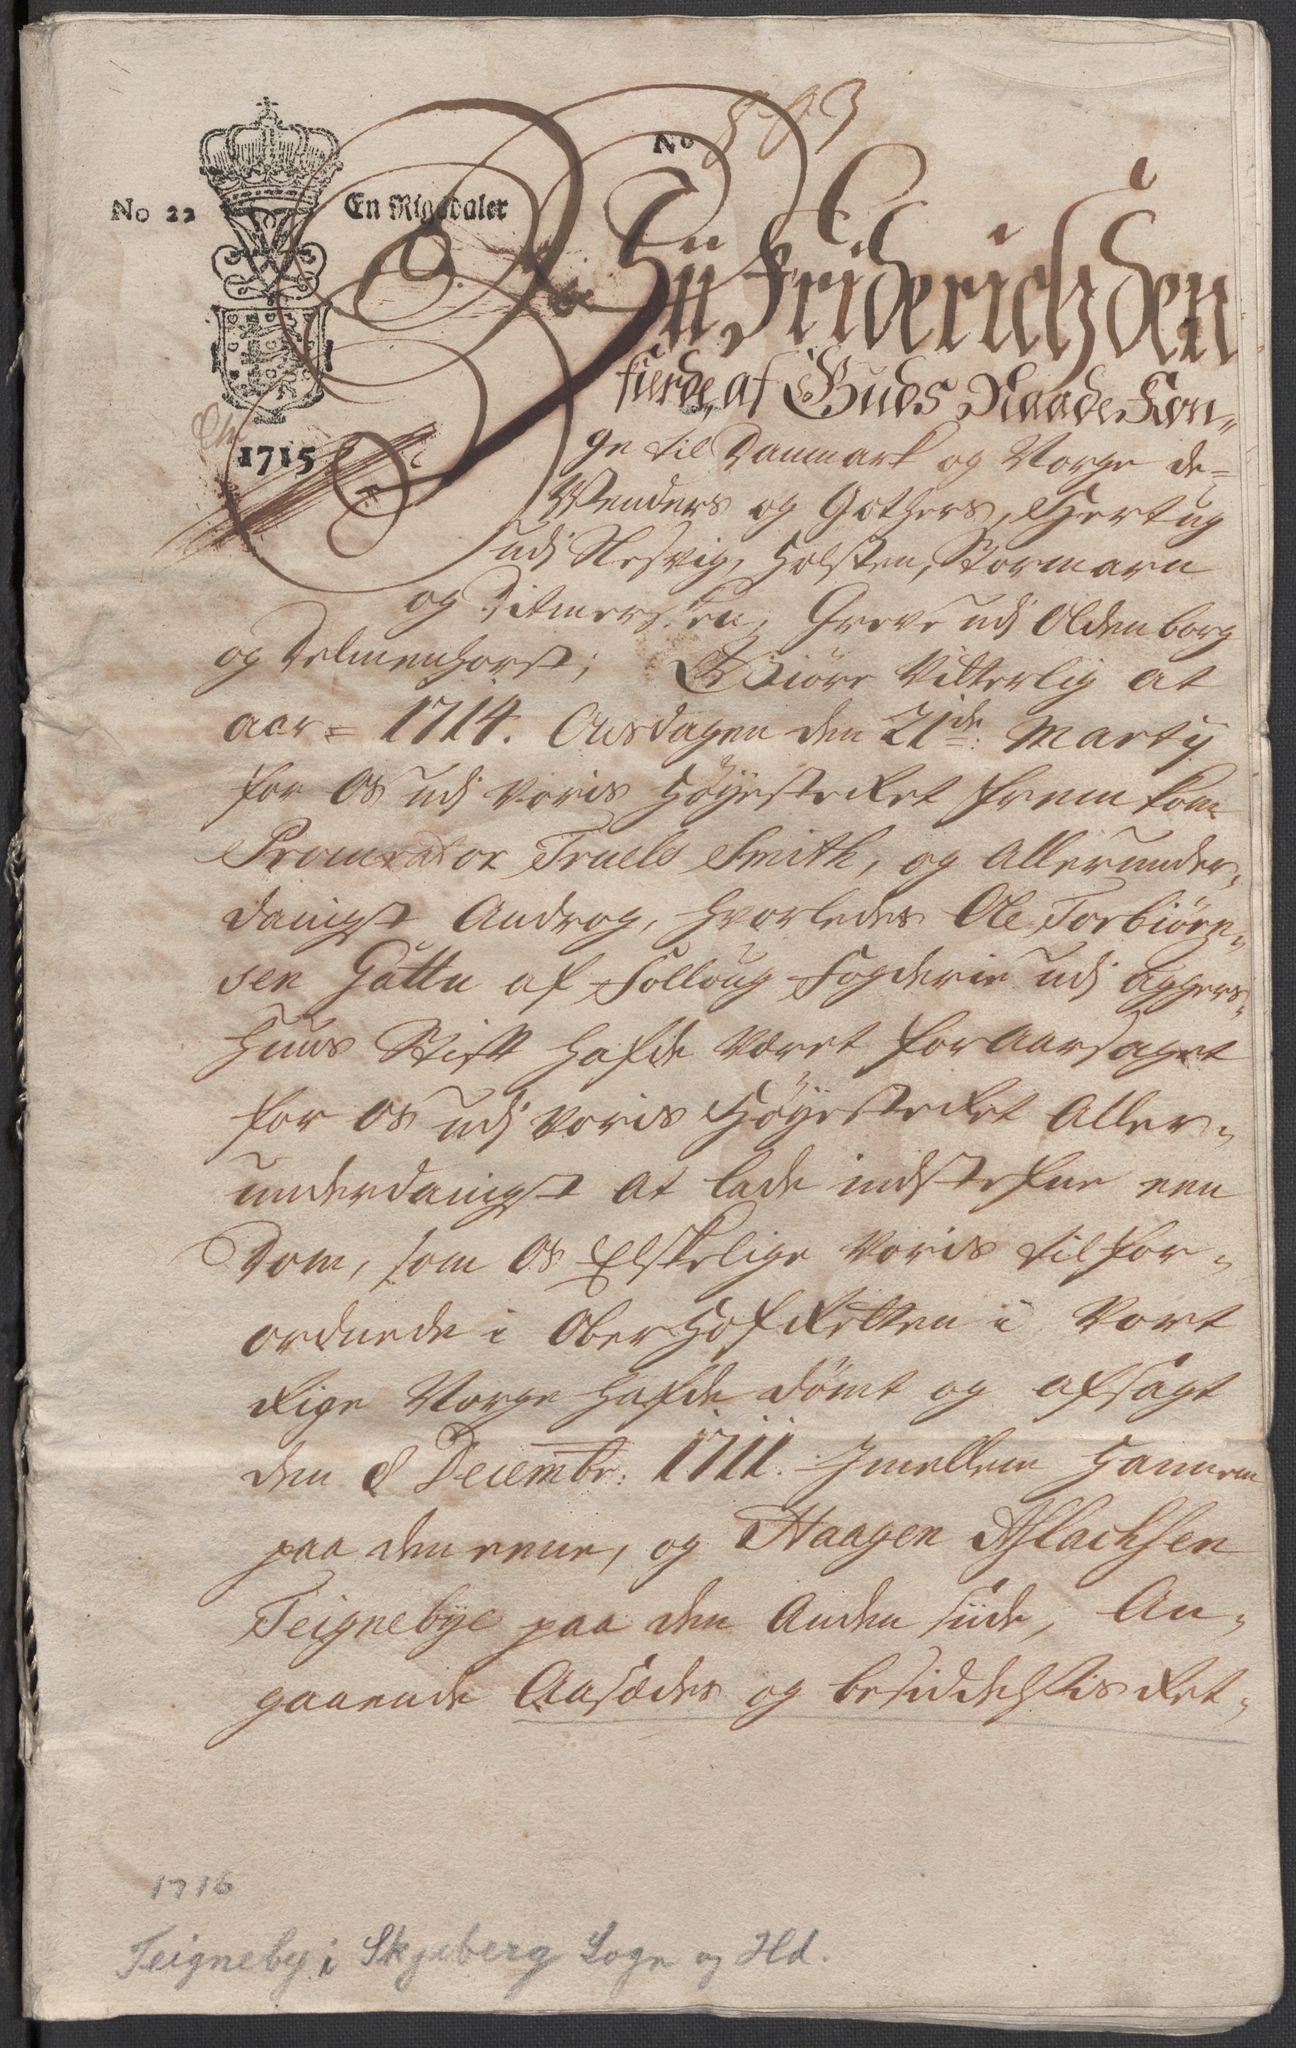 No 893
No 22 En Rigsdaler
1715
Wii Friderich den
fierde, af Guds Naade Kon„
ge til Danmark og Norge de=
Wenders og Gothers, Hertug
udj Slesvig, Holsten, Stormarn
og Ditmersken, Greve udj Oldenborg
og Delmenhorst; Giöre Vitterlig at
aar= 1714. Onsdagen den 21de Martij
for Os udj voris Höyesteret frem kom
Procurator Truels Smith, og Allerunder„
danigst Androg, hvorledes Ole Torbiörn„
sen Gåttu af Folloug Fogderie udj Aggers„
Huus Stift hafde været foraarsaget
for Os udj voris Höyesteret Aller„
underdanigst at lade indstefne een
Dom, som Os Elskelige voris tilfor„
ordnede i Ober Hof Retten i Vort
Rige Norge hafde dömt og afsagt
den 8 Decembr: 1711. Imellem Hannem
paa den eene, og Haagen Aslachsen
Teignebye paa den Anden siide, An„
gaaende Aasædes og besiddelsis Ret„
1716
Teigneby i Skjeberg Sogn og Hd.